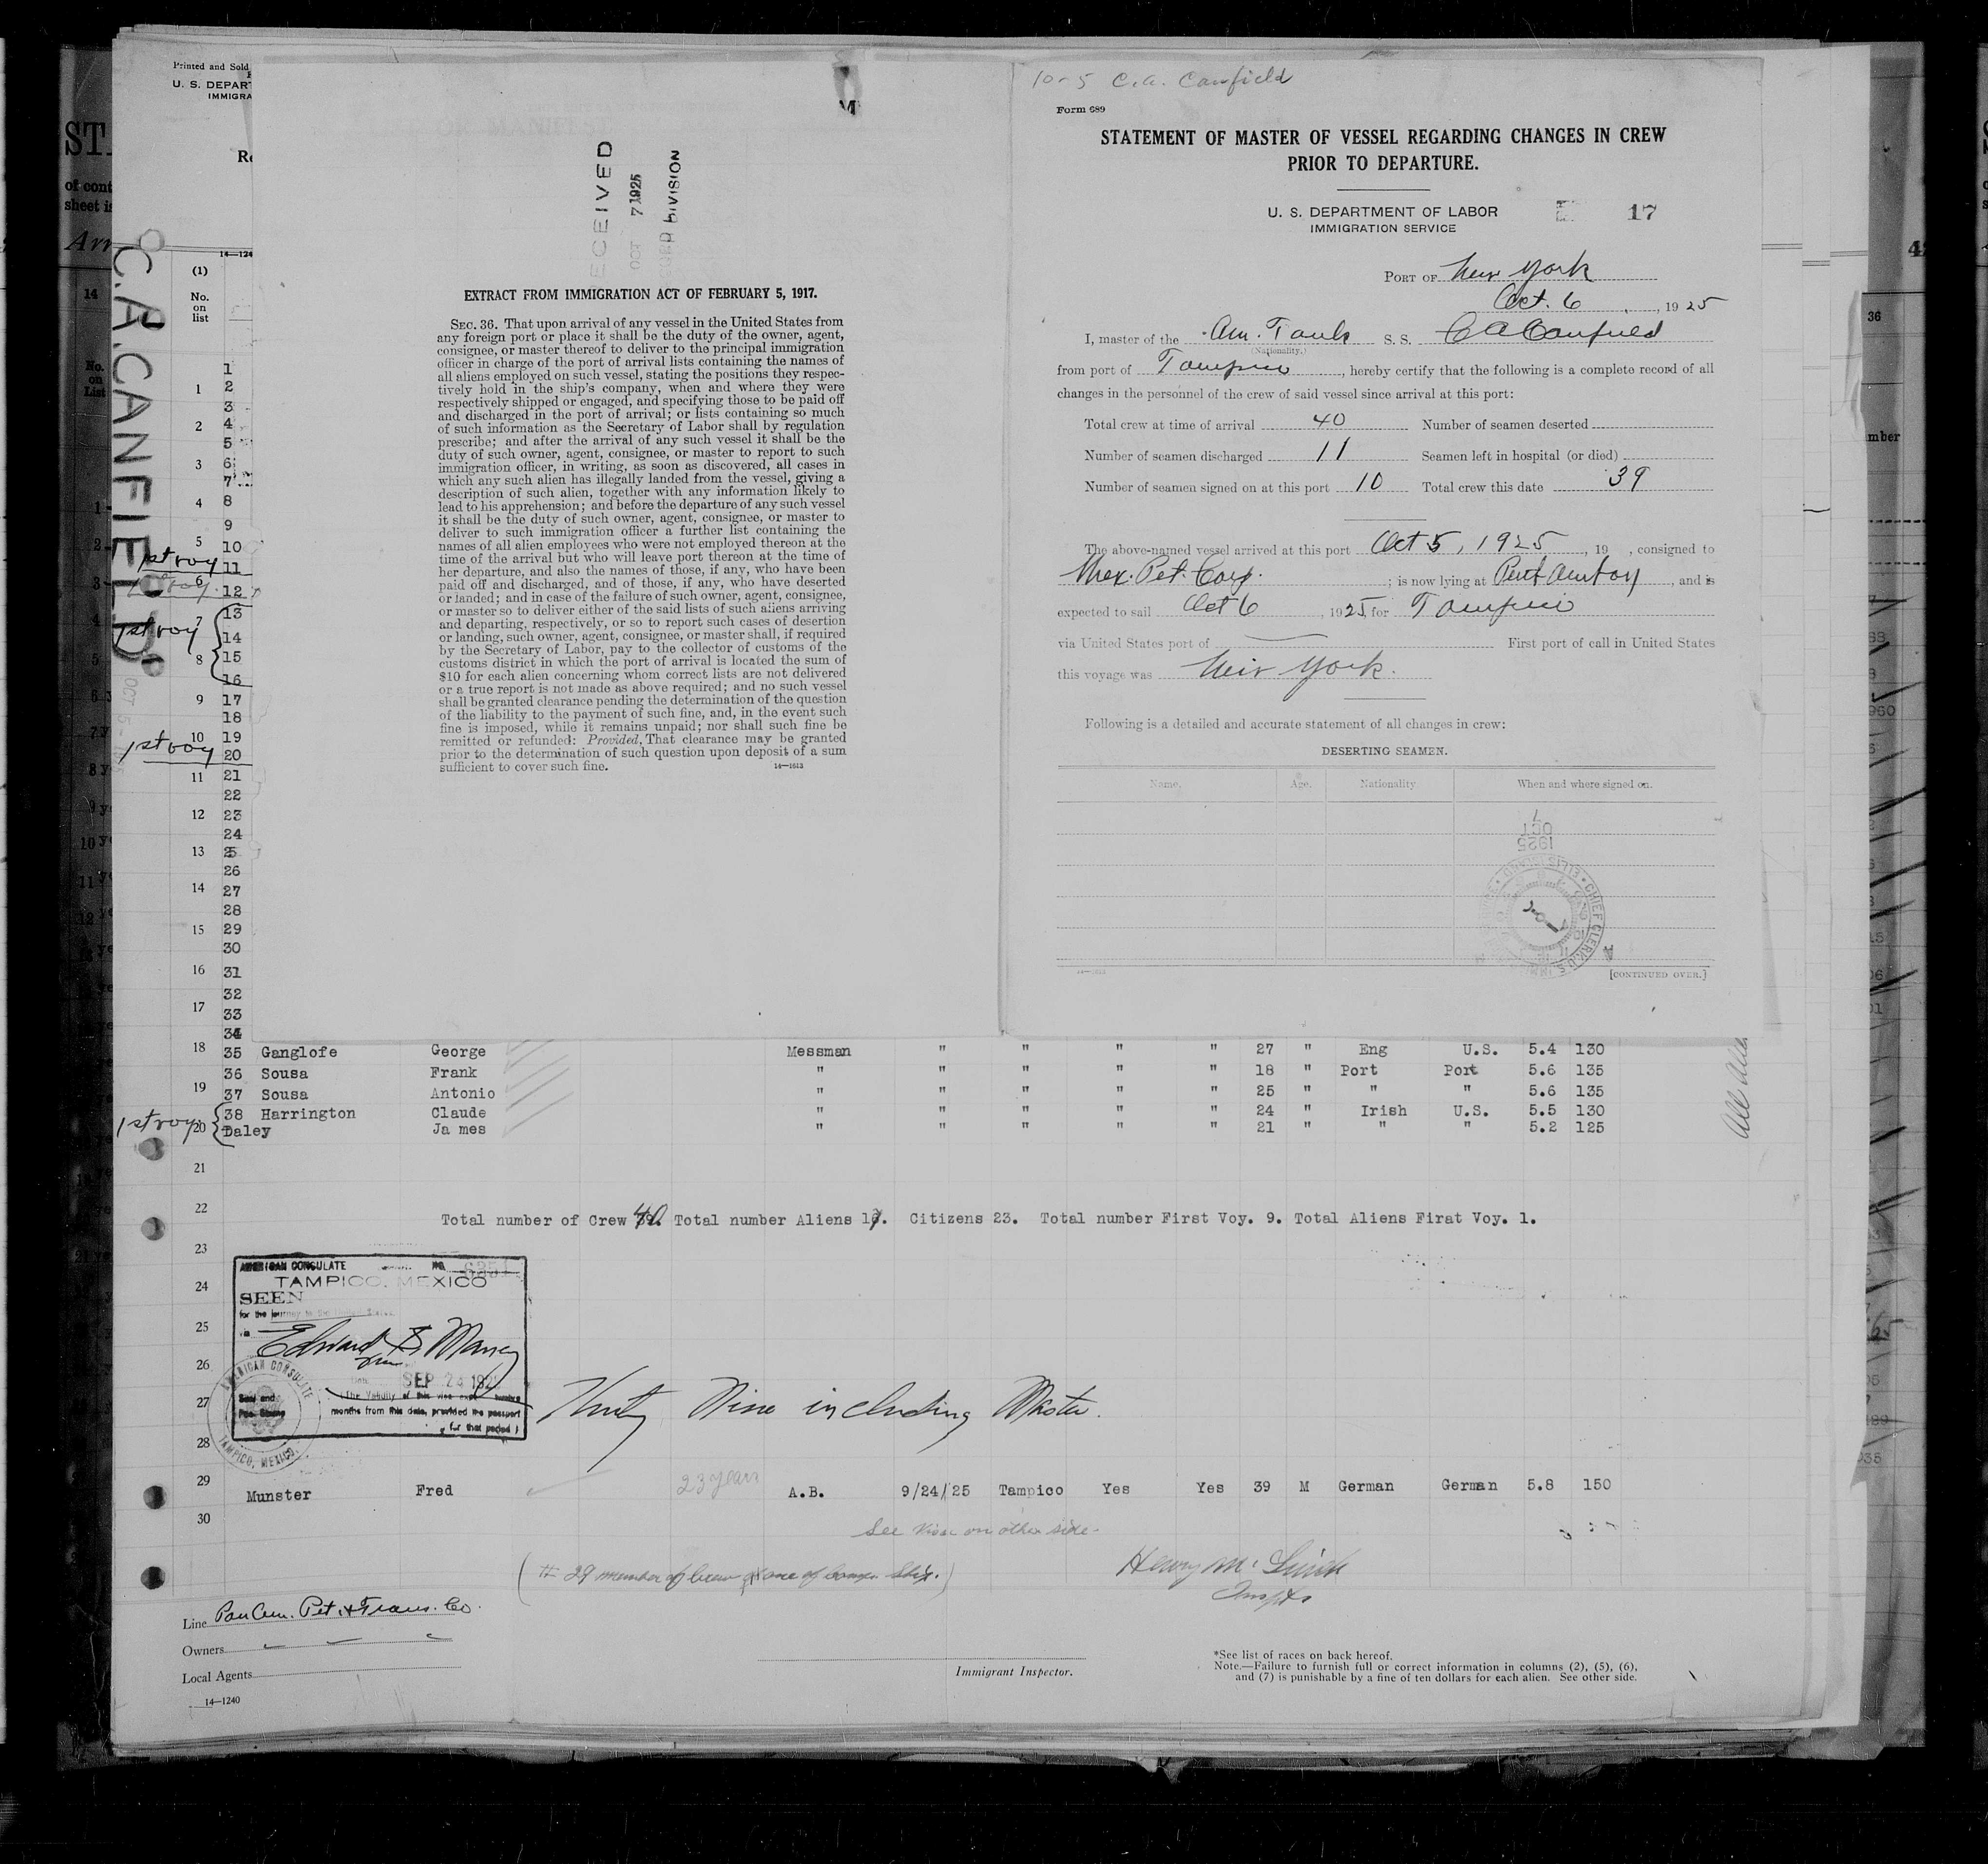 Printed and Sold
U. S. DEPART
IMMIGRA
C.A.CANFIELD
(1)
No.
on
list
RECEIVED
OCT 7 1925
DIVISION
EXTRACT FROM IMMIGRATION ACT OF FEBRUARY 5, 1917.
SEC. 36. That upon arrival of any vessel in the United States from
any foreign port or place it shall be the duty of the owner, agent,
consignee, or master thereof to deliver to the principal immigration
officer in charge of the port of arrival lists containing the names of
all aliens employed on such vessel, stating the positions they respec-
tively hold in the ship's company, when and where they were
respectively shipped or engaged, and specifying those to be paid off
and discharged in the port of arrival; or lists containing so much
of such information as the Secretary of Labor shall by regulation
prescribe; and after the arrival of any such vessel it shall be the
duty of such owner, agent, consignee, or master to report to such
immigration officer, in writing, as soon as discovered, all cases in
which any such alien has illegally landed from the vessel, giving a
description of such alien, together with any information likely to
lead to his apprehension; and before the departure of any such vessel
it shall be the duty of such owner, agent, consignee, or master to
deliver to such immigration officer a further list containing the
names of all alien employees who were not employed thereon at the
time of the arrival but who will leave port thereon at the time of
her departure, and also the names of those, if any, who have been
paid off and discharged, and of those, if any, who have deserted
or landed; and in case of the failure of such owner, agent, consignee,
or master so to deliver either of the said lists of such aliens arriving
and departing, respectively, or so to report such cases of desertion
or landing, such owner, agent, consignee, or master shall, if required
by the Secretary of Labor, pay to the collector of customs of the
customs district in which the port of arrival is located the sum of
$10 for each alien concerning whom correct lists are not delivered
or a true report is not made as above required; and no such vessel
shall be granted clearance pending the determination of the question
of the liability to the payment of such fine, and, in the event such
fine is imposed, while it remains unpaid; nor shall such fine be
remitted or refunded: Provided, That clearance may be granted
prior to the determination of such question upon deposit of a sum
sufficient to cover such fine.
14—1613
10-5 C.A. Canfield
Form 689
STATEMENT OF MASTER OF VESSEL REGARDING CHANGES IN CREW
PRIOR TO DEPARTURE.
U. S. DEPARTMENT OF LABOR
IMMIGRATION SERVICE
17
PORT OF New York
Oct. 6, 1925
I, master of the Am. Tank S. S. C A Canfield
(Nationality.)
from port of Tampico, hereby certify that the following is a complete record of all
changes in the personnel of the crew of said vessel since arrival at this port:
Total crew at time of arrival 40 Number of seamen deserted
Number of seamen discharged 11 Seamen left in hospital (or died)
Number of seamen signed on at this port 10 Total crew this date 39
The above-named vessel arrived at this port Oct 5, 1925, 19 , consigned to
Mex. Pet. Corp. ; is now lying at Port Amboy, and is
expected to sail Oct 6, 1925, for Tampico
via United States port of First port of call in United States
this voyage was New York.
Following is a detailed and accurate statement of all changes in crew:
DESERTING SEAMEN.
Name. Age. Nationality When and where signed on.
1925
OCT
7
[CONTINUED OVER.]
35 Ganglofe George Messman " " " " 27 " Eng U.S. 5.4 130
36 Sousa Frank " " " " " 18 " Port Port 5.6 135
37 Sousa Antonio " " " " " 25 " " " 5.6 135
1st voy 38 Harrington Claude " " " " " 24 " Irish U.S. 5.5 130
Daley Ja mes " " " " " 21 " " " 5.2 125
Total number of Crew 40. Total number Aliens 17. Citizens 23. Total number First Voy. 9. Total Aliens Firat Voy. 1.
AMERICAN CONSULATE NO. 6351
TAMPICO, MEXICO
SEEN
for the journey to the United States
via
SEP 24 192
(The Validity of this visa
months from this date, provided the passport
for that period)
AMERICAN CONSULATE
TAMPICO, MEXICO.
Thirty Nine including Master.
Munster Fred 23 years A.B. 9/24/25 Tampico Yes Yes 39 M German German 5.8 150
See visa on other side.
Line Pan Am. Pet. & Trans. Co.
Owners
Local Agents
14—1240
Immigrant Inspector.
*See list of races on back hereof.
Note.—Failure to furnish full or correct information in columns (2), (5), (6),
and (7) is punishable by a fine of ten dollars for each alien. See other side.